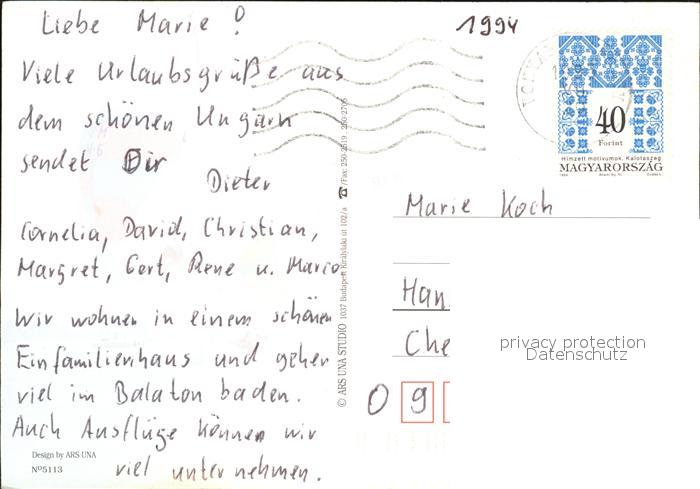 Liebe Marie !
Viele Urlaubsgrüße aus
dem schönen Ungarn
sendet Dir
Dieter
Cornelia, David, Christian,
Margret, Gert, Rene u. Mario
Wir wohnen in einem schönen
Einfamilienhaus und gehen
viel im Balaton baden.
Auch Ausflüge können wir
viel unternehmen.
Design by ARS UNA
Nº5113
© ARS UNA STUDIO 1037 Budapest Királylaki út 102/a ☎/Fax: 250-2519 250-2705
1994
40
Forint
Hímzett motívumok, Kalotaszeg
MAGYARORSZÁG
Marie Koch
Han
Che
0 9
privacy protection
Datenschutz